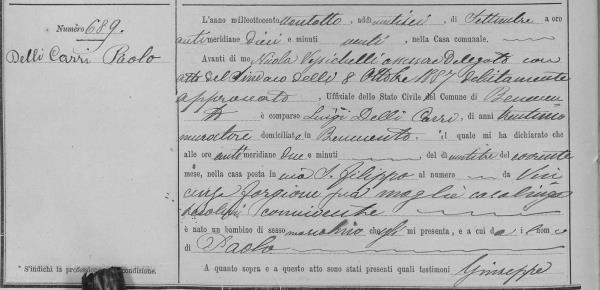 Numero 689.
Delli Carri Paolo
* S'indichi la professione o la condizione.
L'anno milleottocento ventotto, addì ventisei, di Settembre a ore
anti meridiane dieci e minuti venti, nella Casa comunale.
Avanti di me Nicola Vessichelli assessore Delegato con
atto del Sindaco delli 8 Ottobre 1887 debitamente
approvato, Uffiziale dello Stato Civile del Comune di Beneven
to è comparso Luigi Delli Carri, di anni trentuno
muratore domiciliato in Benevento, il quale mi ha dichiarato che
alle ore anti meridiane due e minuti del dì ventitre del corrente
mese, nella casa posta in via S. Filippo al numero da Vin
cenza Forgione sua moglie casalinga
seco lui convivente
è nato un bambino di sesso maschino che egli mi presenta, e a cui dà i l nome
di Paolo
A quanto sopra e a questo atto sono stati presenti quali testimoni Giuseppe